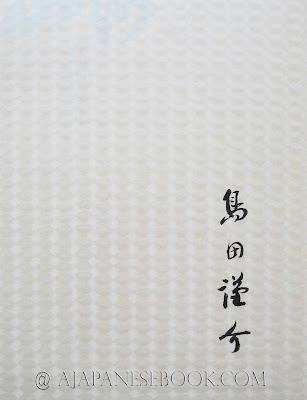 島田謹介
@ AJAPANESEBOOK.COM